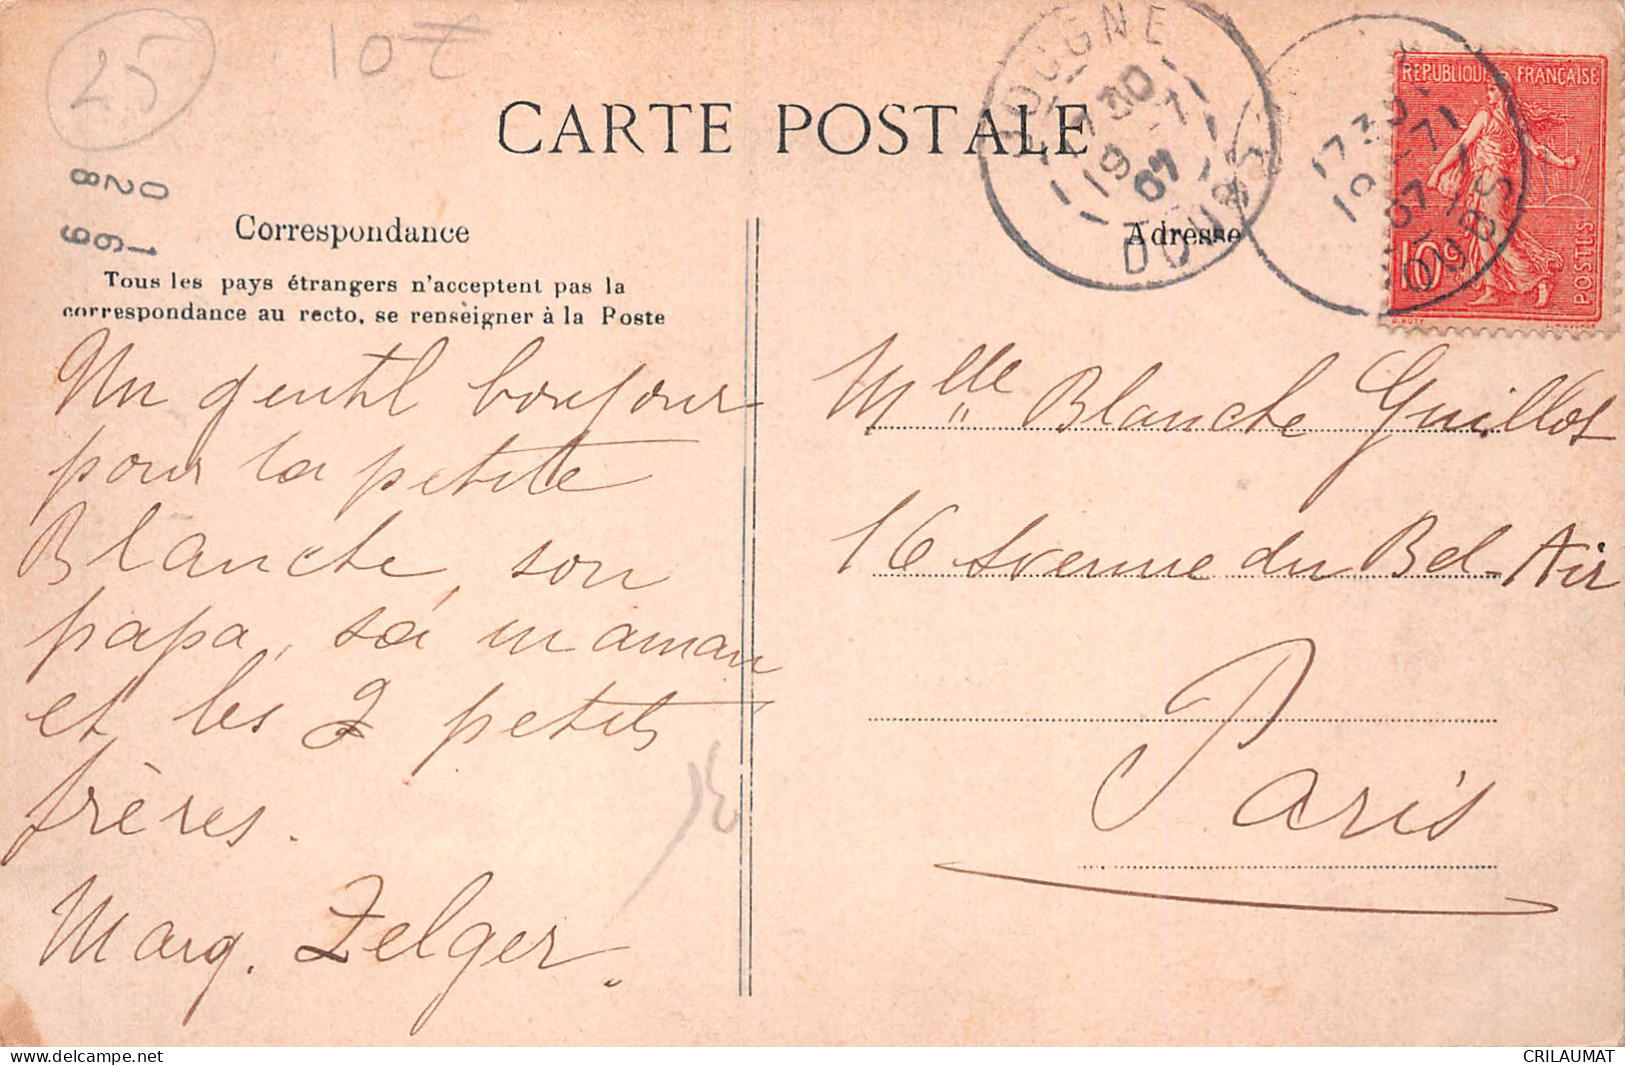 25
10
CARTE POSTALE
028
169
DOUBS
17 30
19 - 7
07
17 30
19 - 7
07
DOUBS
REPUBLIQUE FRANÇAISE
10c
POSTES
Correspondance
Adresse
Tous les pays étrangers n'acceptent pas la
correspondance au recto, se renseigner à la Poste
Un gentil bonjour
pour la petite
Blanche, son
papa, sa maman
et les 2 petits
frères.
Marg. Zelger.
Mlle Blanche Guillot
16 Avenue du Bel-Air
Paris
CRILAUMAT